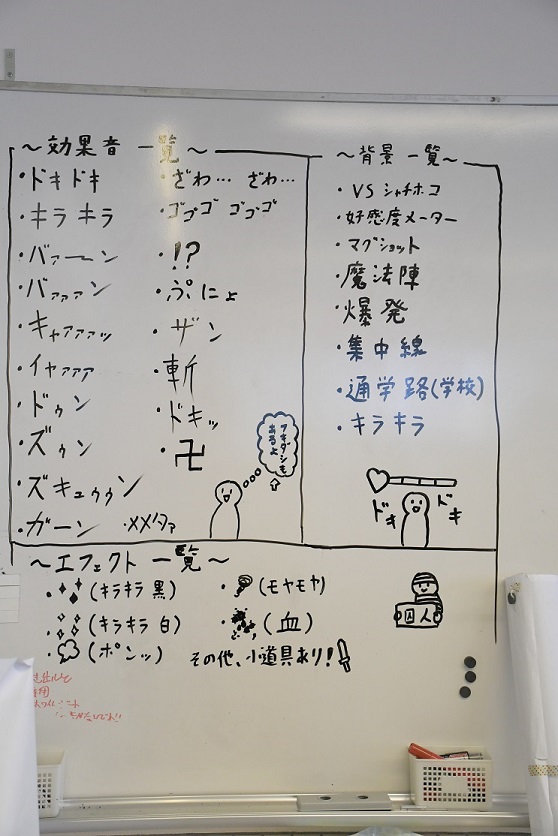 ～効果音 一覧～
・ドキドキ
・キラキラ
・バァーーン
・バァァァン
・キャァァァッ
・イヤァァァ
・ドゥン
・ズゥン
・ズキュゥゥン
・ガーン
・ざわ… ざわ…
・ゴゴゴ ゴゴゴ
・!?
・ぷにょ
・ザン
・斬
・ドキッ
・卍
・メメタァ
フキダシも
あるよ
～背景 一覧～
・VS シャチホコ
・好感度メーター
・マグショット
・魔法陣
・爆発
・集中線
・通学路(学校)
・キラキラ
ドキ
ドキ
～エフェクト 一覧～
・(キラキラ 黒)
・(キラキラ 白)
・(ポンッ)
・(モヤモヤ)
・(血)
その他、小道具あり!
囚人